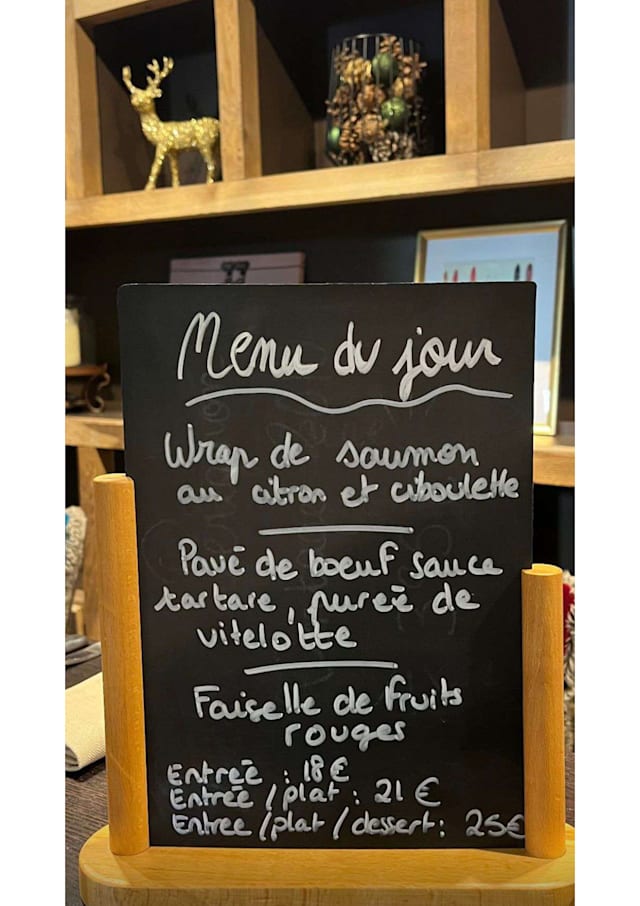 Menu du jour
Wrap de saumon
au citron et ciboulette
Pavé de boeuf sauce
tartare, pureé de
vitelotte
Faiselle de fruits
rouges
Entreé : 18€
Entrée / plat : 21 €
Entree / plat / dessert : 25€